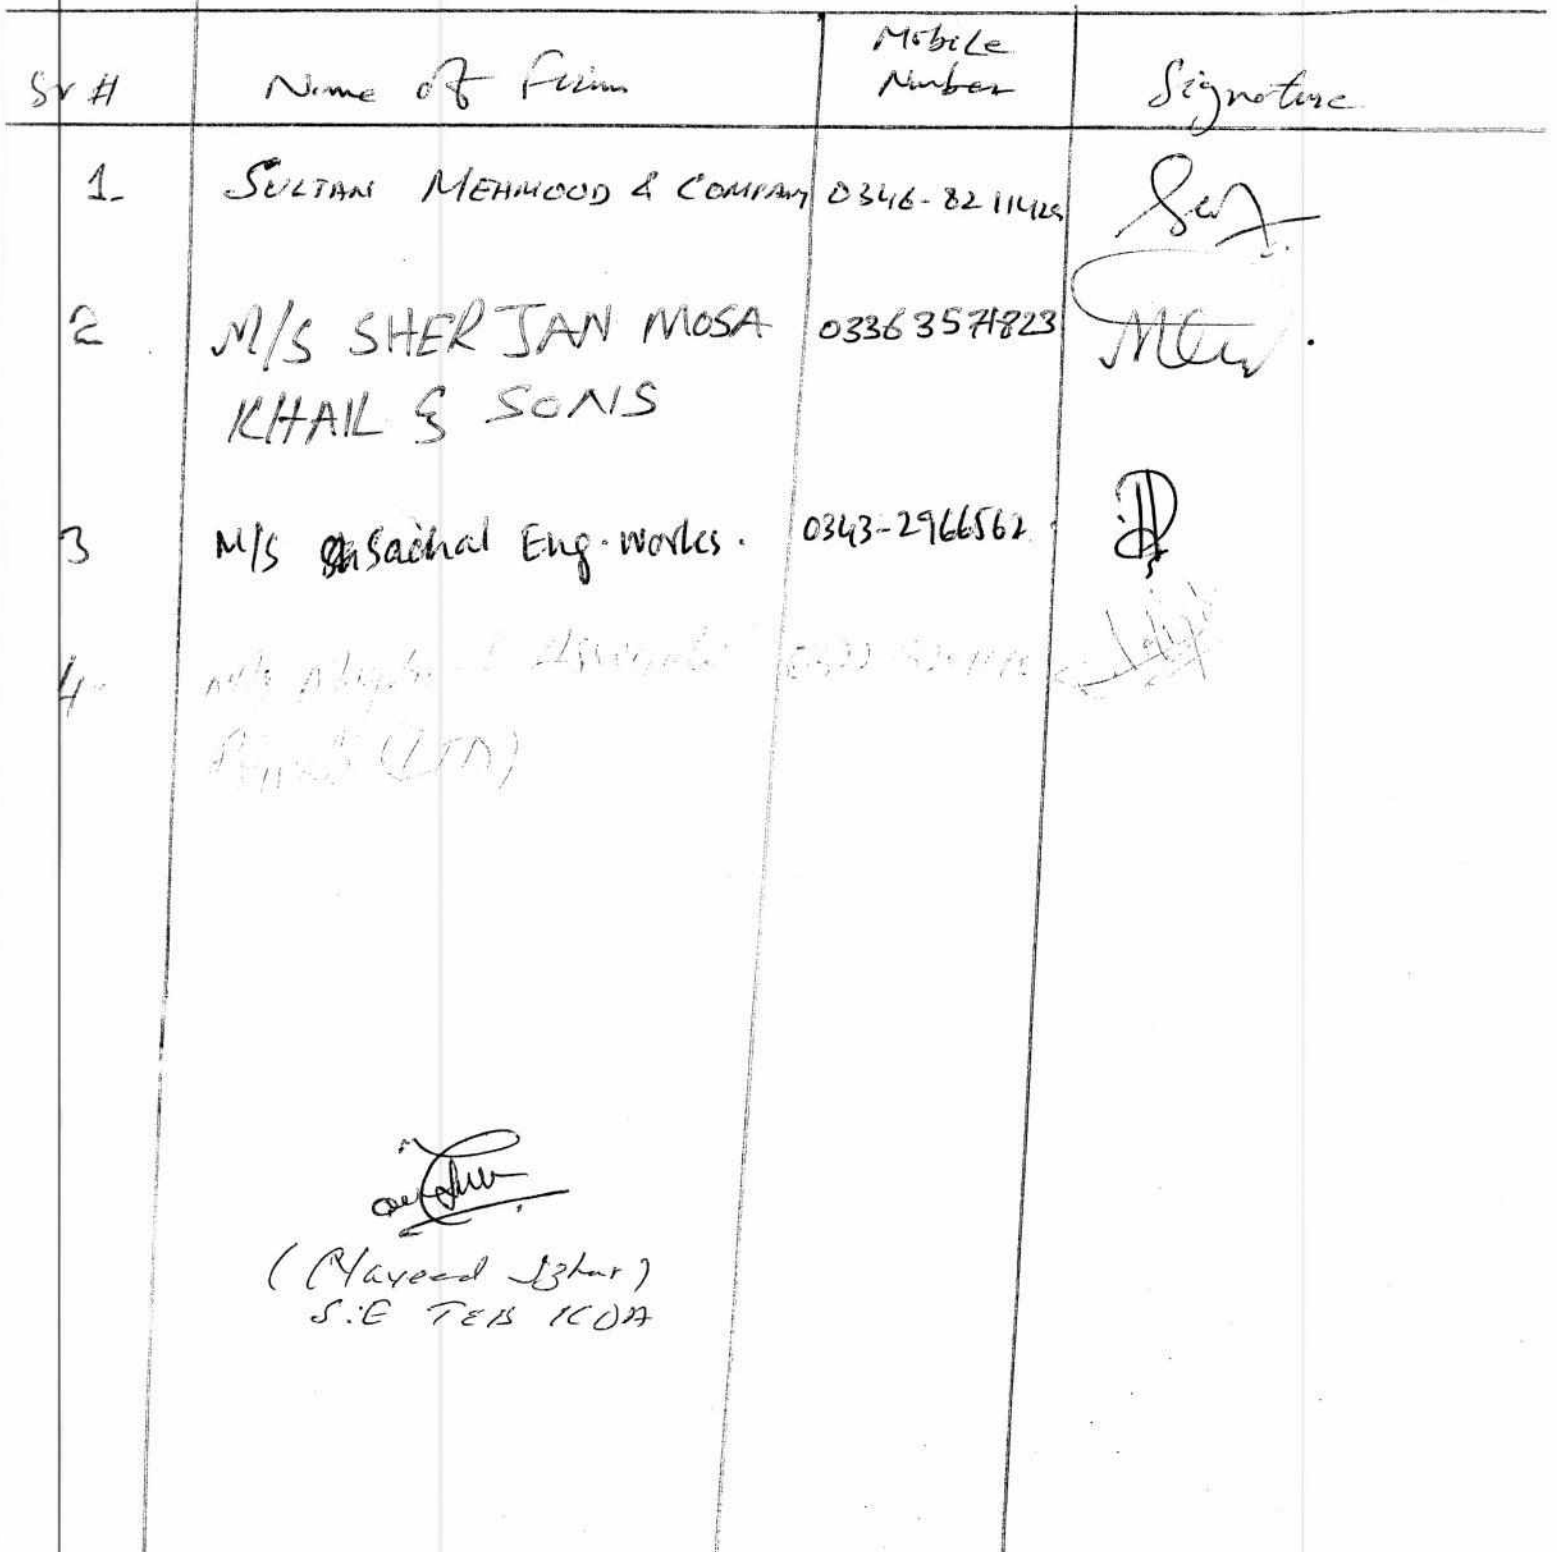 Sr # Name of Firim Mobile Number Signature
1- SULTAN MEHMOOD & COMPANY 0346-8211425
2 M/S SHER JAN MOSA 03363571823
KHAIL & SONS
3 M/S Sachal Eng. works. 0343-2966562
4- M/s
(LTD)
(Naveed Izhar)
S.E TEB KDA